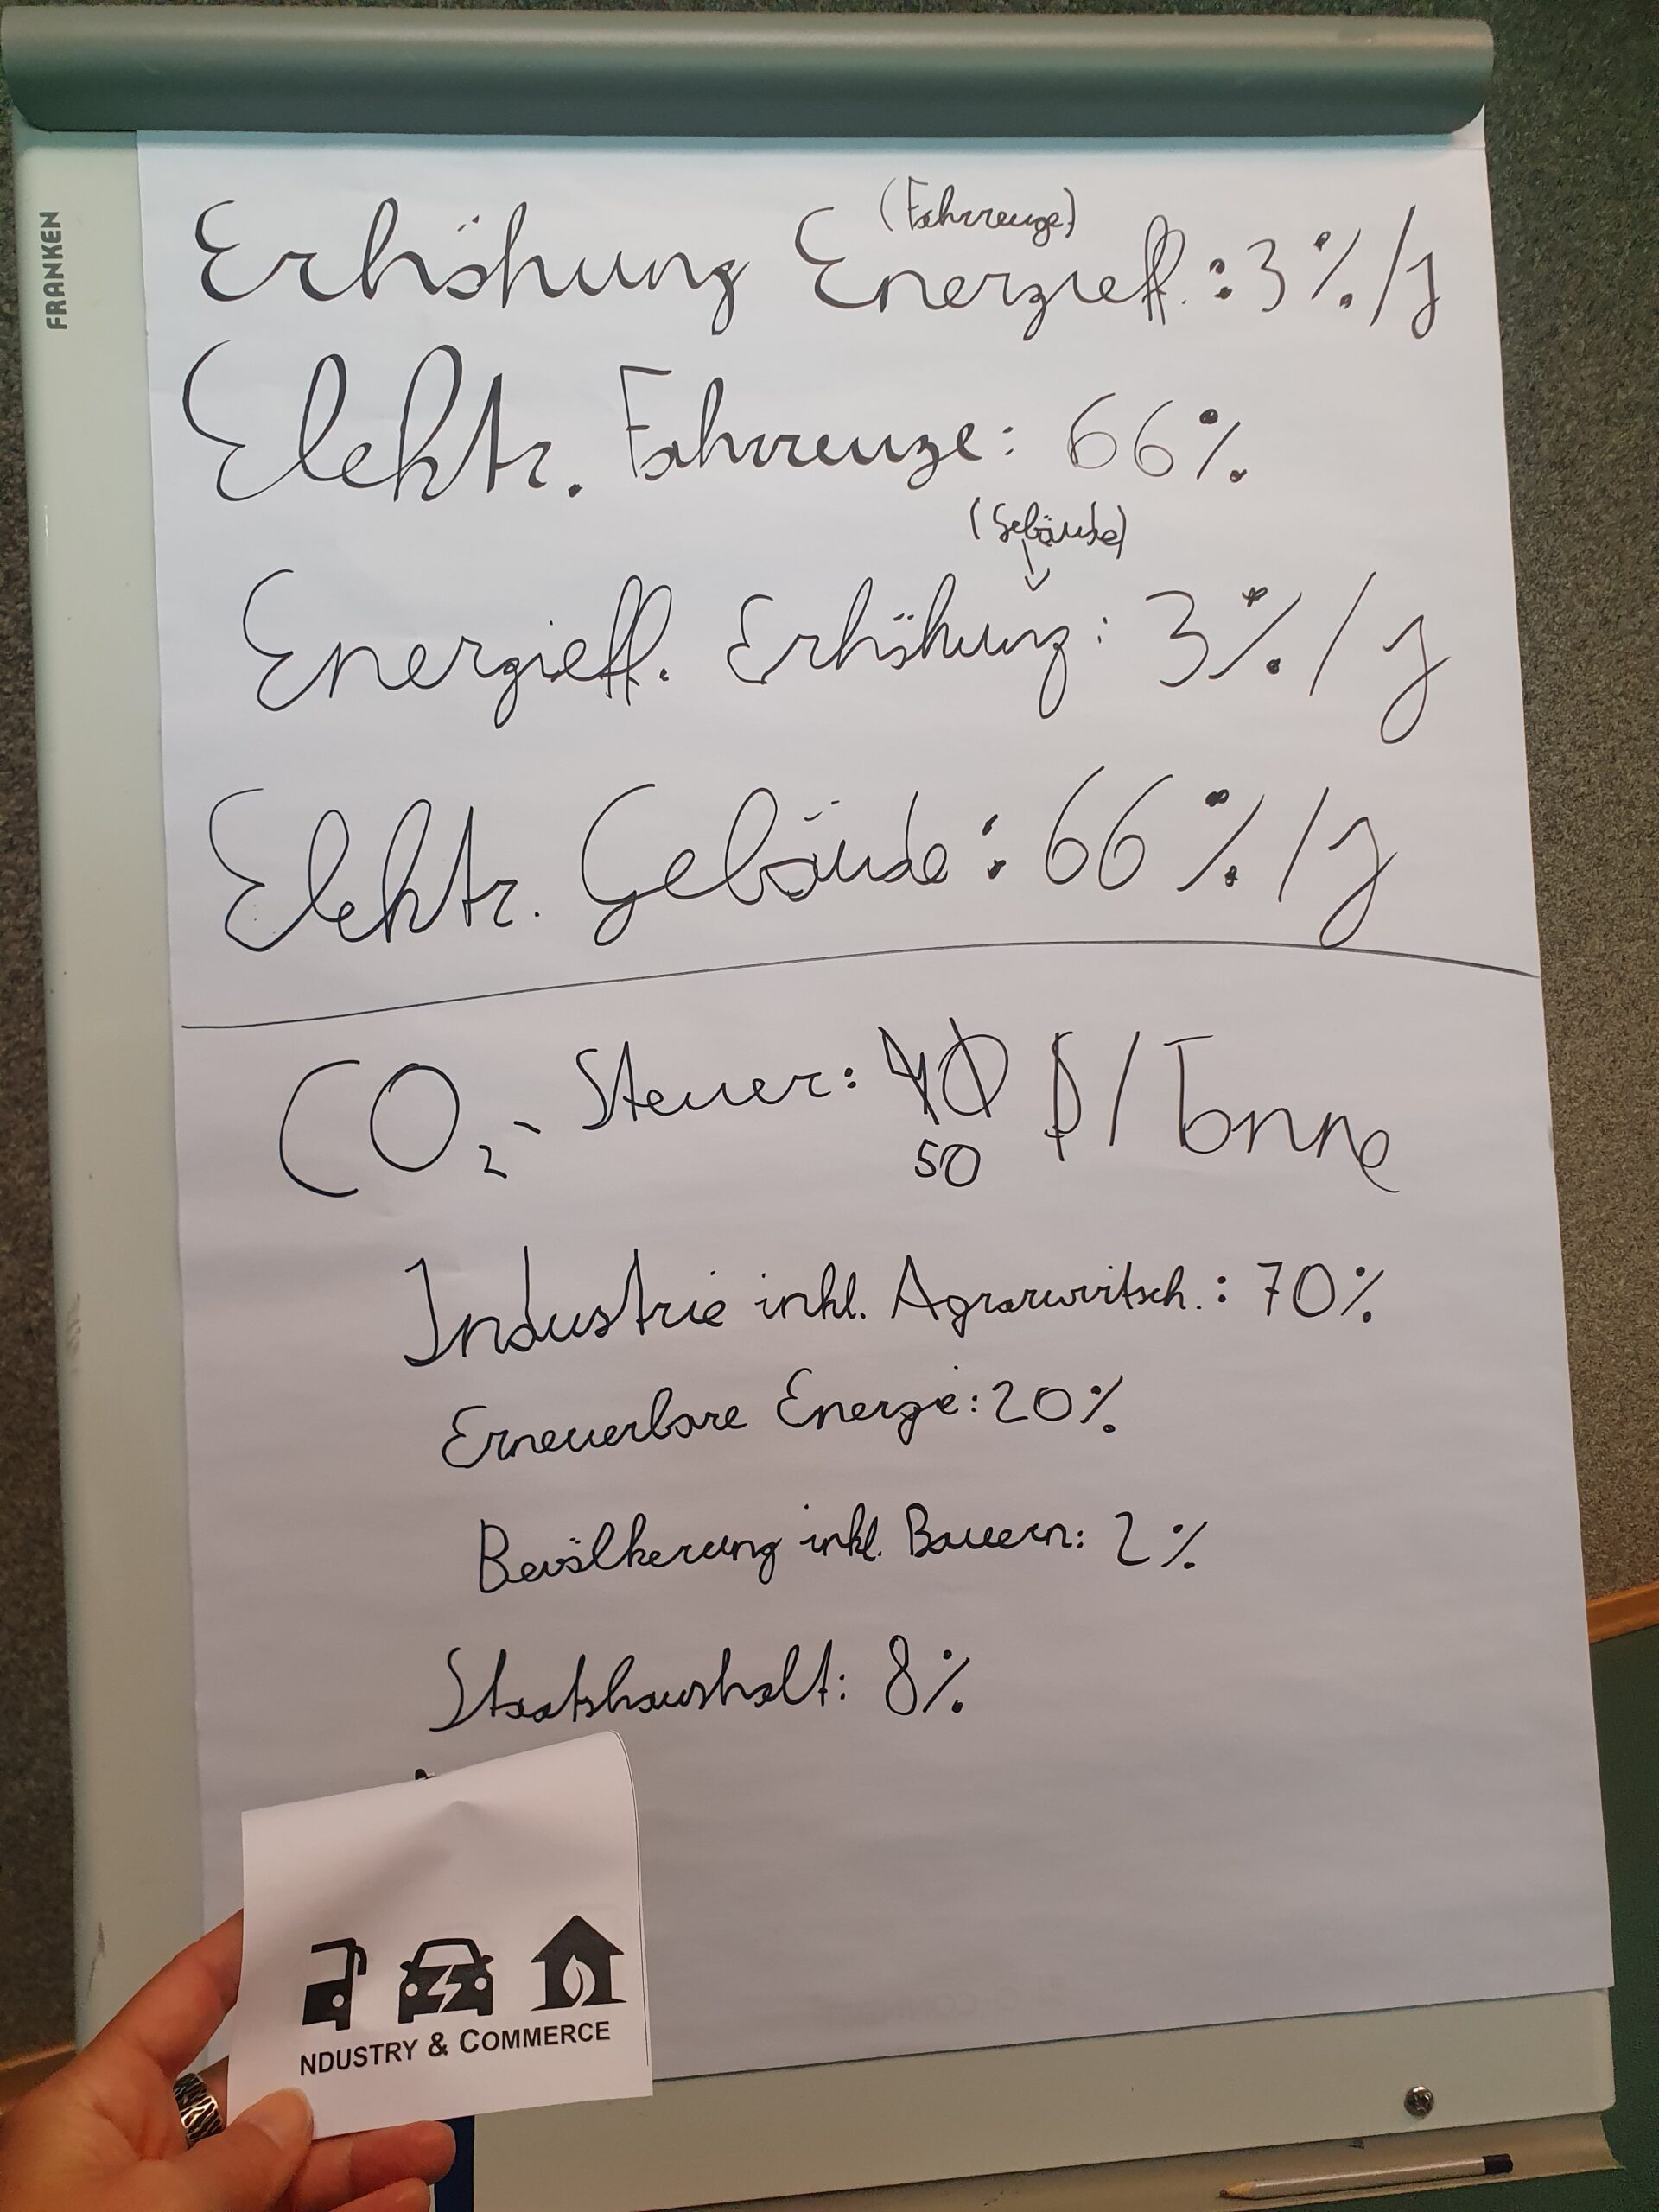 FRANKEN
(Fahrzeuge)
Erhöhung Energieeff.: 3%/J
Elektr. Fahrzeuge: 66%
(Gebäude)
Energieeff. Erhöhung: 3%/J
Elektr. Gebäude: 66%/J
CO₂-Steuer: 40 $/Tonne
50
Industrie inkl. Agrarwirtsch.: 70%
Erneuerbare Energie: 20%
Bevölkerung inkl. Bauern: 2%
Staatshaushalt: 8%
NDUSTRY & COMMERCE